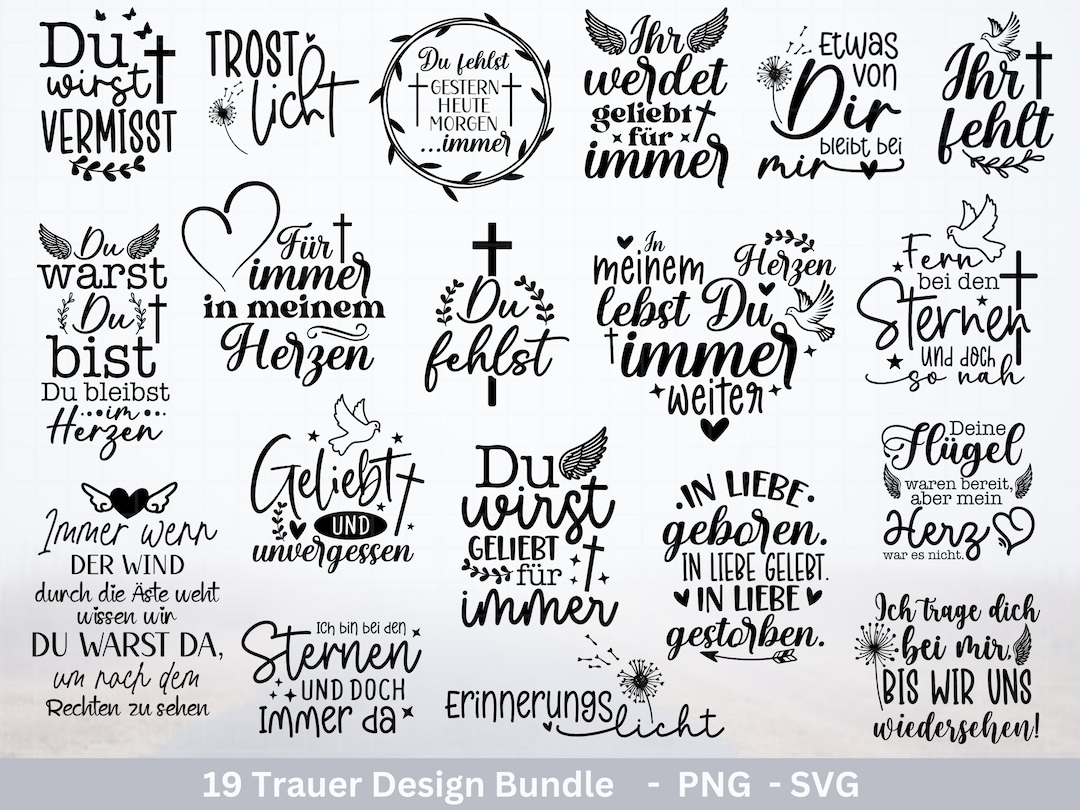 Du
wirst
VERMISST
TROST
licht
Du fehlst
GESTERN
HEUTE
MORGEN
...immer
Ihr
werdet
geliebt
für
immer
Etwas
von
Dir
bleibt bei
mir
Ihr
fehlt
Du
warst
Du
bist
Du bleibst
im
Herzen
Für
immer
in meinem
Herzen
Du
fehlst
In
meinem Herzen
lebst Du
immer
weiter
Fern
bei den
Sternen
und doch
so nah
Immer wenn
DER WIND
durch die Äste weht
wissen wir
DU WARST DA,
um nach dem
Rechten zu sehen
Geliebt
UND
unvergessen
Du
wirst
GELIEBT
für
immer
.IN LIEBE.
geboren.
IN LIEBE GELEBT.
IN LIEBE
gestorben.
Deine
Flügel
waren bereit,
aber mein
Herz
war es nicht.
Ich bin bei den
Sternen
UND DOCH
Immer da
Erinnerungs
licht
Ich trage dich
bei mir,
BIS WIR UNS
wiedersehen!
19 Trauer Design Bundle - PNG - SVG